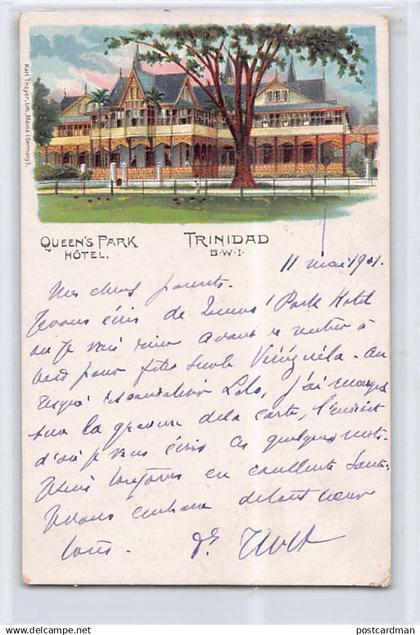 Karl Theyer, Lith. Mainz (Germany).
QUEEN'S PARK HÔTEL.
TRINIDAD B·W·I·
11 mai 1901.
Mes chers parents.
Je vous écris de Queens' Park Hotel
où je vais dîner avant de rentrer à
bord pour filer sur le Vénézuéla. Au
j'ai marqué
sur la gravure de la carte, l'endroit
d'où je vous écris ces quelques mots.
toujours en excellente santé.
Je vous embrasse de tout coeur
tous.
© postcardman
postcardman.com